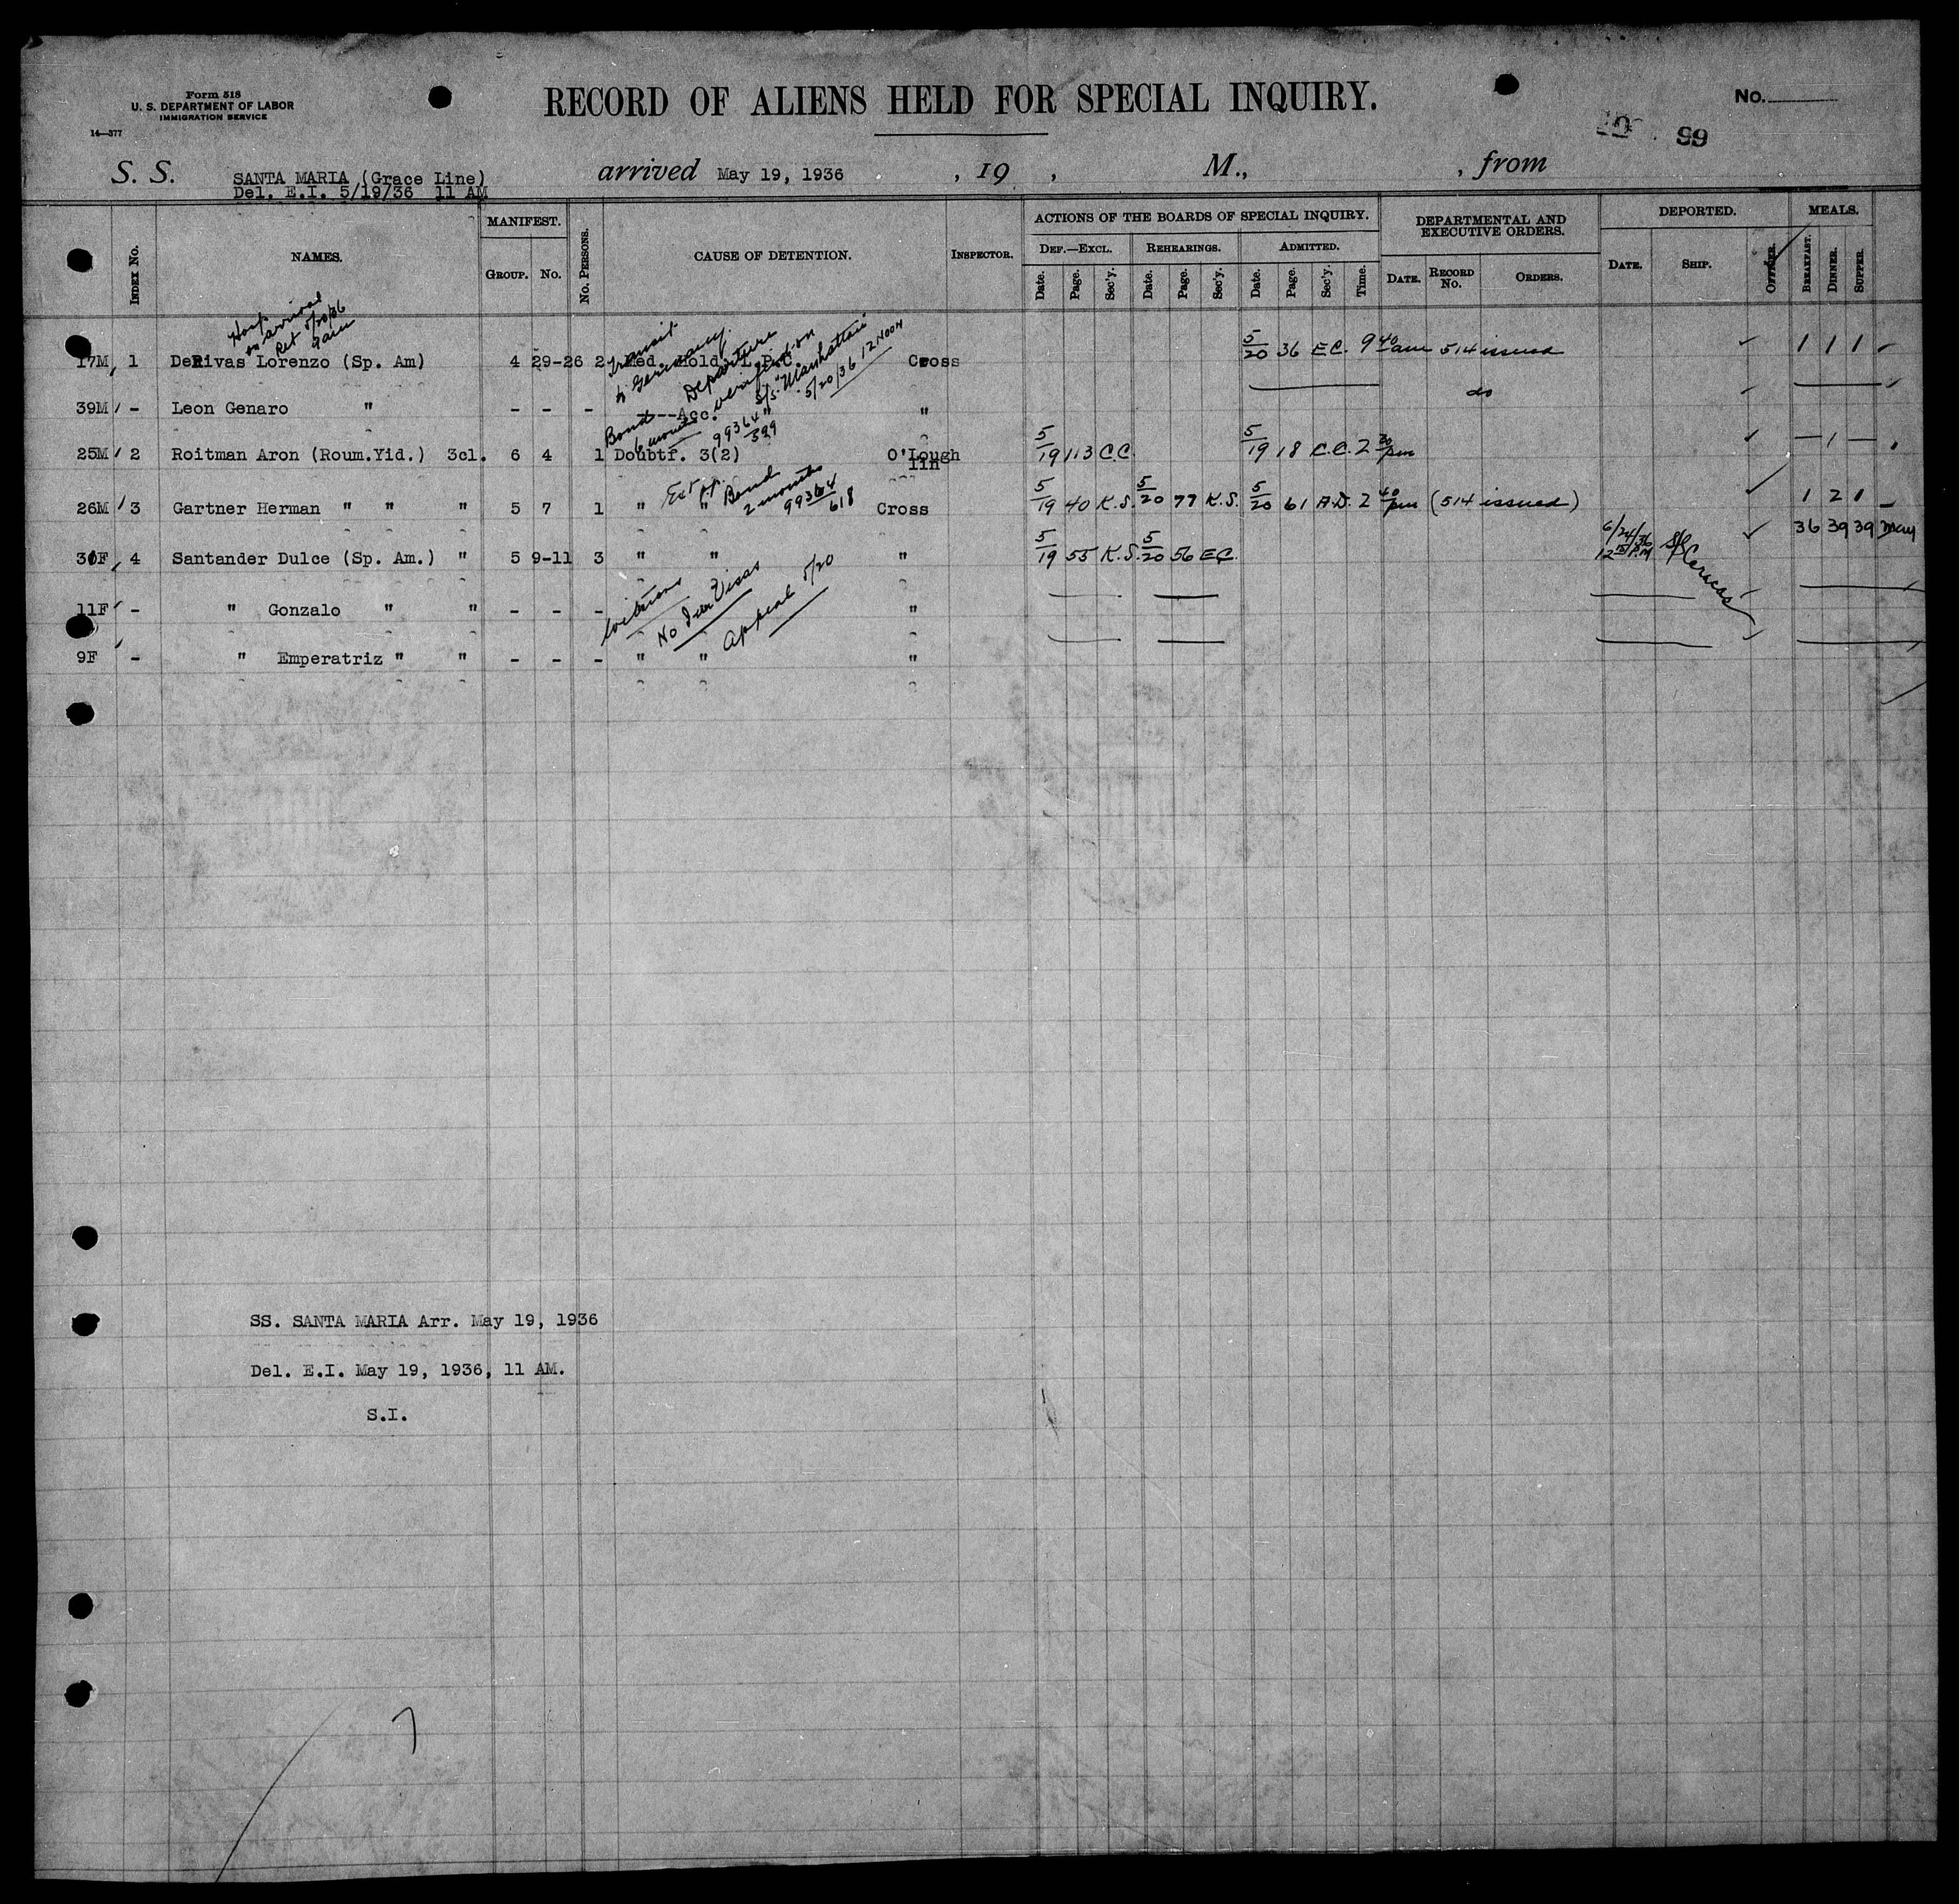 Form 518
U. S. DEPARTMENT OF LABOR
IMMIGRATION SERVICE
14—377
RECORD OF ALIENS HELD FOR SPECIAL INQUIRY.
No.
99
S. S. SANTA MARIA (Grace Line) arrived May 19, 1936 , 19 , M., , from
Del. E.I. 5/19/36 11 AM
INDEX NO.
NAMES.
MANIFEST.
GROUP. NO.
NO. PERSONS.
CAUSE OF DETENTION.
INSPECTOR.
ACTIONS OF THE BOARDS OF SPECIAL INQUIRY.
DEF.—EXCL. REHEARINGS. ADMITTED.
Date. Page. Sec'y. Date. Page. Sec'y. Date. Page. Sec'y. Time.
DEPARTMENTAL AND EXECUTIVE ORDERS.
DATE. RECORD NO. ORDERS.
DEPORTED.
DATE. SHIP. OFFICER.
MEALS.
BREAKFAST. DINNER. SUPPER.
Hosp
on arrival
Ret 5/20/36
9am
Transit
to Germany.
Departure
verified on
S/S. "Manhattan"
5/20/36 12 NOON
17M 1 DeRivas Lorenzo (Sp. Am) 4 29-26 2 Med. Hold: L.P.C. Cross 5/20 36 E.C. 9 40 am 514 issued 1 1 1
39M - Leon Genaro " - - - --Acc. " " do
Bond
6 months
99364/599
25M 2 Roitman Aron (Roum.Yid.) 3cl. 6 4 1 Doubtf. 3(2) O'Lough
lin 5/19 113 C.C. 5/19 18 C.C. 2 30 pm — 1 —
Bond
2 months
99364/618
26M 3 Gartner Herman " " " 5 7 1 " " Cross 5/19 40 K.S. 5/20 77 K.S. 5/20 61 A.D. 2 40 pm (514 issued) 1 2 1
F 4 Santander Dulce (Sp. Am.) " 5 9-11 3 " " " 5/19 55 K.S. 5/20 56 E.C. 6/24/36 S/S Caracas 36 39 39
No Imm Visas
Appeal 5/20
11F - " Gonzalo " " - - - "
9F - " Emperatriz " " - - - " " "
SS. SANTA MARIA Arr. May 19, 1936
Del. E.I. May 19, 1936, 11 AM.
S.I.
7